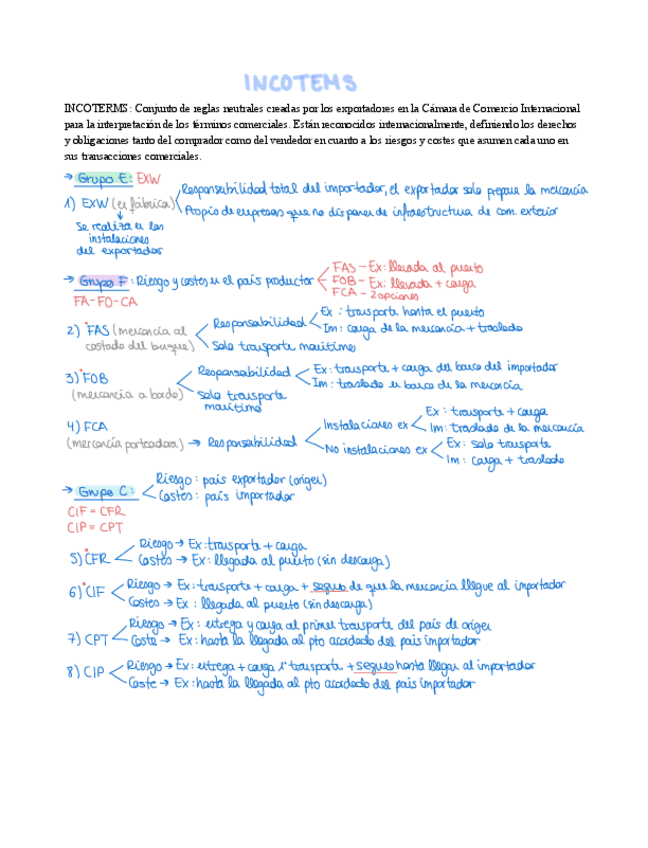 INCOTEMS
INCOTERMS: Conjunto de reglas neutrales creadas por los exportadores en la Cámara de Comercio Internacional
para la interpretación de los términos comerciales. Están reconocidos internacionalmente, definiendo los derechos
y obligaciones tanto del comprador como del vendedor en cuanto a los riesgos y costes que asumen cada uno en
sus transacciones comerciales.
→ Grupo E: EXW
1) EXW (en fábrica)
Se realiza en las
instalaciones
del exportador
Responsabilidad total del importador, el exportador solo prepara la mercancía
Propio de empresas que no disponen de infraestructura de com. exterior
→ Grupo F: Riesgo y costes en el país productor
FA-FO-CA
FAS - Ex: llevada al puerto
FOB - Ex: llevada + carga
FCA - 2 opciones
2) FAS (mercancía al
costado del buque)
Responsabilidad
Ex : transporte hasta el puerto
Im: carga de la mercancía + traslado
Solo transporte marítimo
3) FOB
(mercancía a bordo)
Responsabilidad
Ex: transporte + carga del barco del importador
Im: traslado en barco de la mercancía
Solo transporte
marítimo
4) FCA
(mercancía porteadora) → Responsabilidad
Instalaciones ex
Ex : transporte + carga
Im: traslado de la mercancía
No instalaciones ex
Ex: solo transporte
Im : carga + traslado
→ Grupo C:
Riesgo : país exportador (origen)
Costes : país importador
CIF = CFR
CIP = CPT
5) CFR
Riesgo → Ex: transporte + carga
Costes → Ex: llegada al puerto (sin descarga)
6) CIF
Riesgo → Ex: transporte + carga + seguro de que la mercancía llegue al importador
Costes → Ex : llegada al puerto (sin descarga)
7) CPT
Riesgo → Ex: entrega y carga al primer transporte del país de origen
Coste → Ex: hasta la llegada al pto acordado del país importador
8) CIP
Riesgo → Ex: entrega + carga 1º transporte + seguro hasta llegar al importador
Coste → Ex: hasta la llegada al pto acordado del país importador